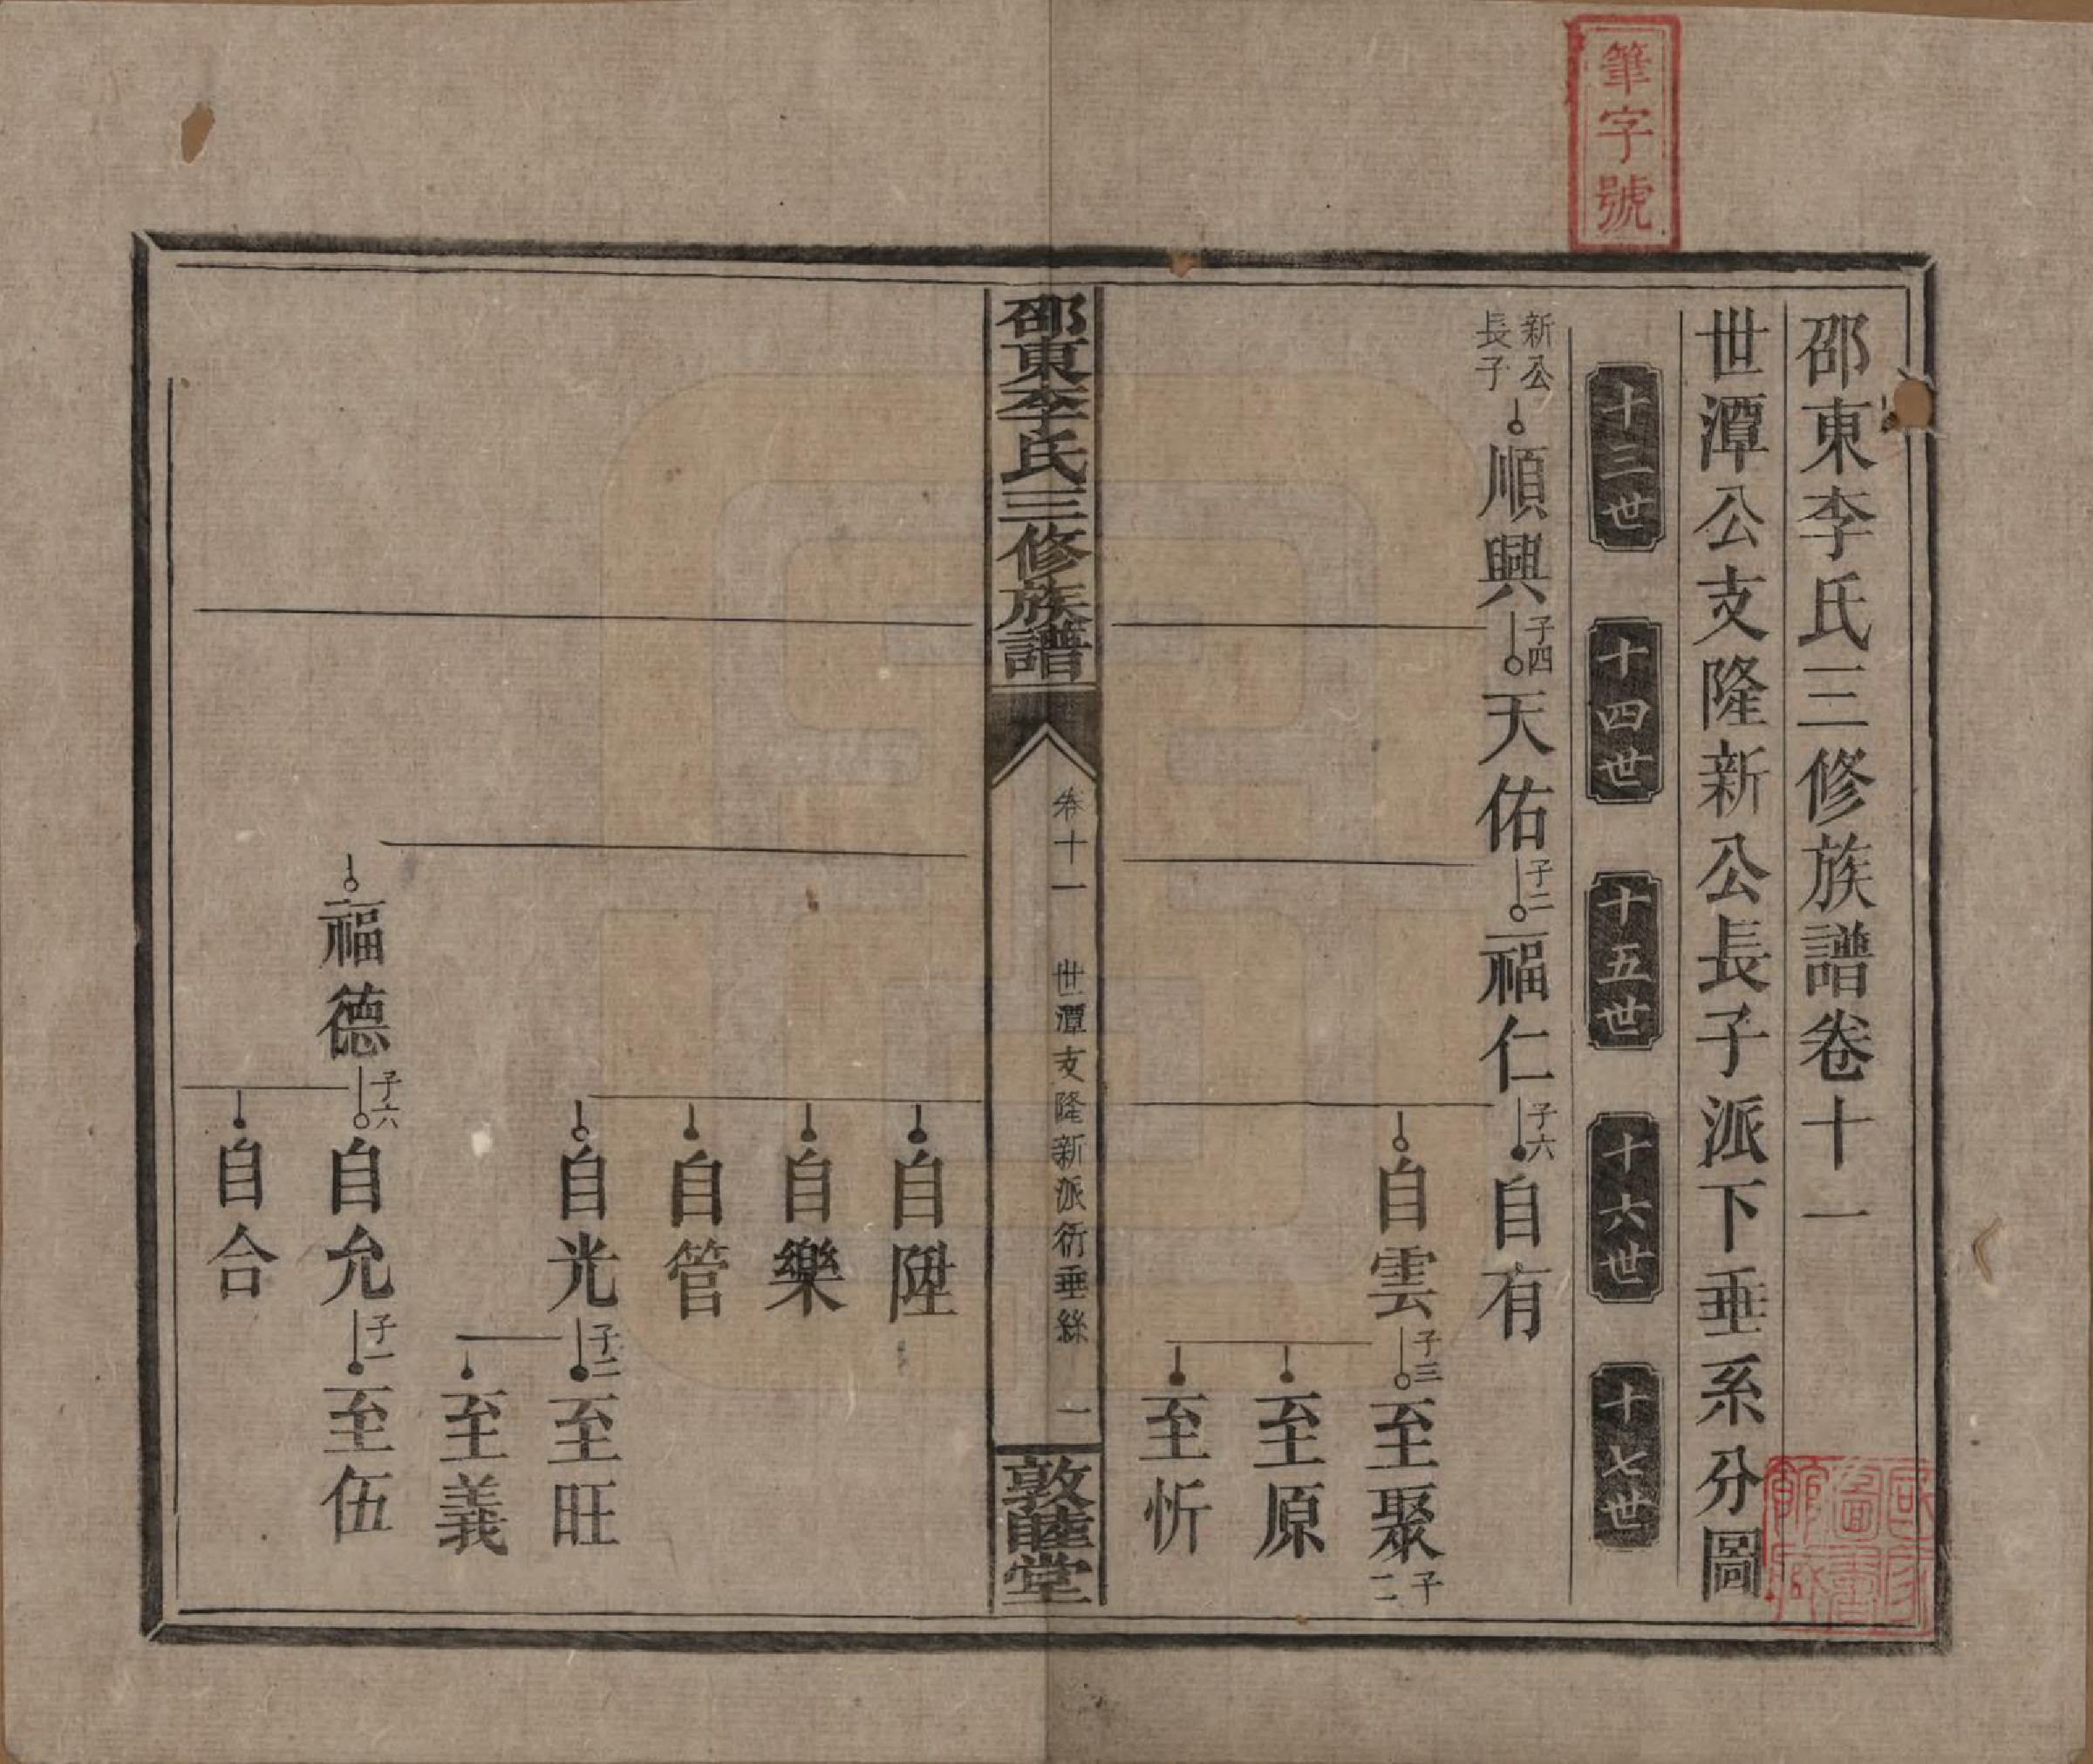 筆字號
邵東李氏三修族譜卷十一
世潭公支隆新公長子派下垂系分圖
十三世
十四世
十五世
十六世
十七世
新公
長子
順興
子四
天佑
子二
福仁
子六
自有
自雲
子三
至聚
子二
至原
至忻
邵東李氏三修族譜
卷十一
世潭支隆新派衍垂絲
一
敦睦堂
自陞
自樂
自管
自光
子二
至旺
至義
福德
子六
自允
子一
至伍
自合